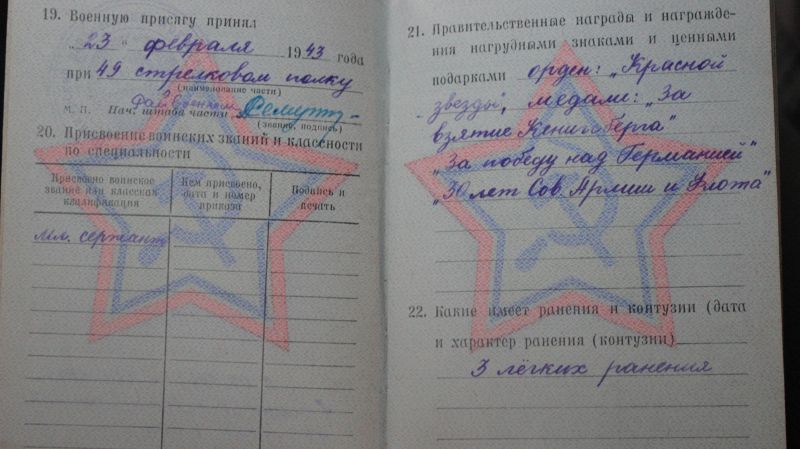 19. Военную присягу принял
„23“ февраля 1943 года
при 49 стрелковом полку
(наименование части)
М. П. Нач. штаба части
(звание, подпись)
20. Присвоение воинских званий и классности
по специальности
Присвоено воинское
звание или классная
квалификация
Кем присвоено,
дата и номер
приказа
Подпись и
печать
мл. сержант
21. Правительственные награды и награжде-
ния нагрудными знаками и ценными
подарками орден: „Красной
звезды", медали: "За
взятие Кенигсберга"
"За победу над Германией"
"30 лет Сов. Армии и Флота"
22. Какие имеет ранения и контузии (дата
и характер ранения (контузии)
3 лёгких ранения